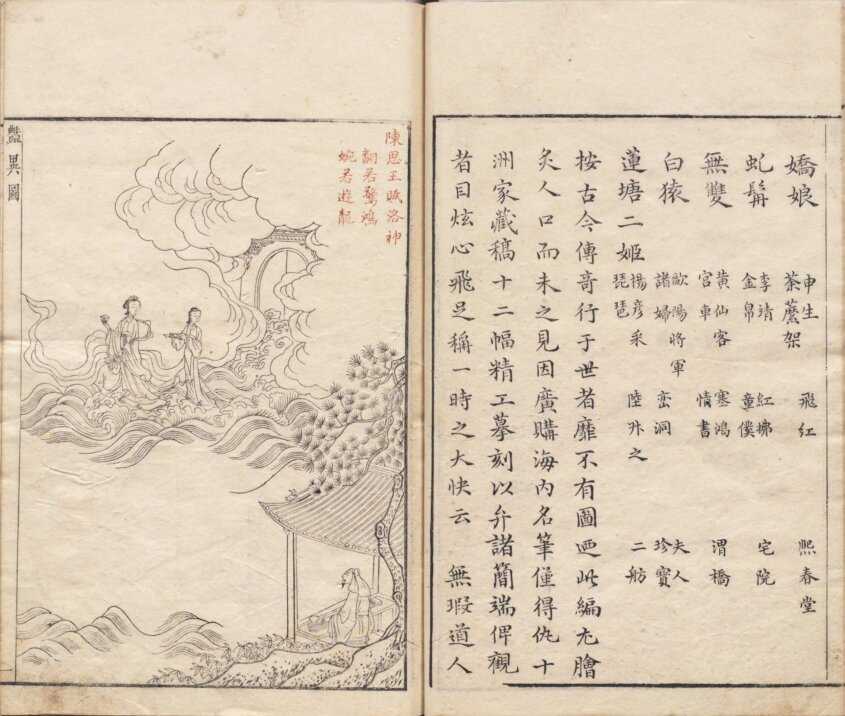 嬌娘 申生 荼蘼架 飛紅 熙春堂
虬髯 李靖 金帛 紅拂 童僕 宅院
無雙 黄仙客 宮車 塞鴻 情書 渭橋
白猿 歐陽將軍 諸婦 蛮洞 夫人 珍寶
蓮塘二姬 楊彦采 琵琶 陸升之 二舫
按古今傳奇行于世者靡不有圖迺此編尤膾
炙人口而未之見因廣購海內名筆僅得仇十
洲家藏稿十二幅精工摹刻以弁諸簡端俾觀
者目炫心飛足稱一時之大快云 無瑕道人
陳思王賦洛神
翩若驚鴻
婉若遊龍
豔異圖